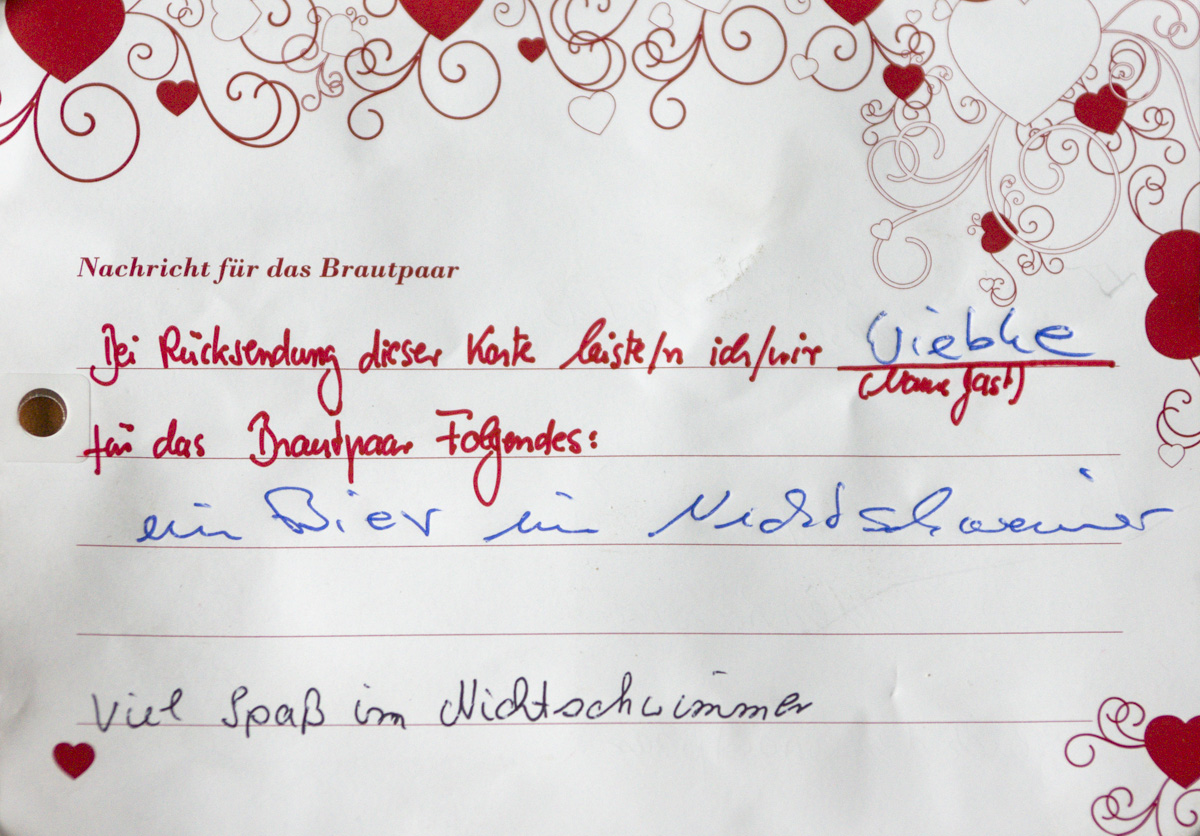 Nachricht für das Brautpaar
Bei Rücksendung dieser Karte leiste/n ich/wir Wiebke
(Name Gast)
für das Brautpaar Folgendes:
ein Bier im Nichtschwimmer
Viel Spaß im Nichtschwimmer